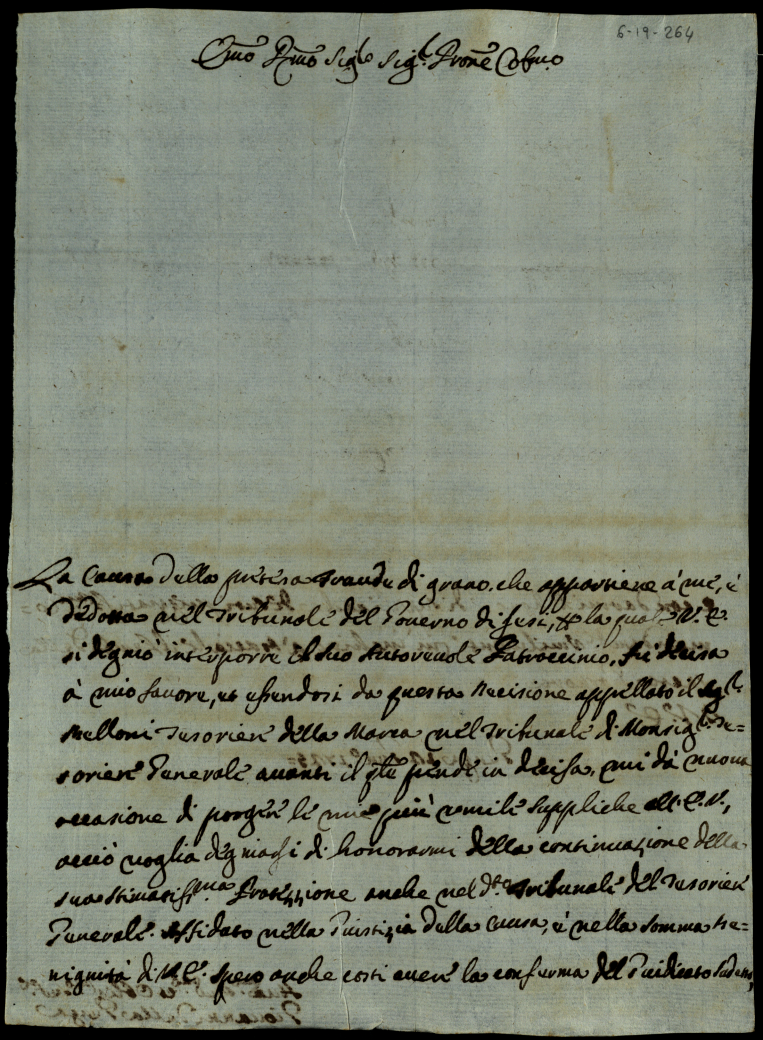 6-19-264
Emo Rmo Sig.re Sig.r Prone Colmo
La Causa della pretesa fraude di grano, che appartiene à me, è
dedotta nel Tribunale del Governo di Jesi, la quale V. E.
si degniò interporre il suo Autorevole Patroccinio, fù decisa
à mio favore, et essendosi da questa decisione appellato il Sig.r
Belloni Tesoriere della Marca nel Tribunale di Monsig.r Te=
soriere Generale avanti il qle pende indecisa, mi dà nuova
occasione di porgere le mie più umili suppliche all'E. V.,
acciò voglia degniarsi di honorarmi della continuazione della
sua stimatiss.ma Protezzione anche nel d.to Tribunale del Tesoriere
Generale. Affidato nella Giustizia della Causa, e nella somma Be=
nignità di V. E. spero anche costì avere la conferma del Giudicato